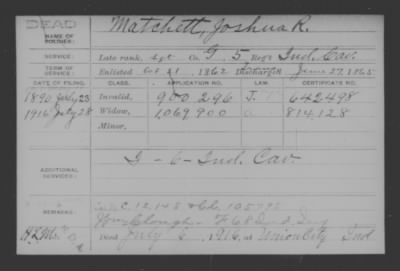 DEAD
NAME OF SOLDIER: Matchett, Joshua R.
SERVICE: Late rank, Sgt Co. G, 5 Reg't Ind. Cav.
TERM OF SERVICE: Enlisted 1862 Discharged June 27, 1865
DATE OF FILING. CLASS. APPLICATION NO. LAW. CERTIFICATE NO.
1890 July 23 Invalid, 900 296 J. 642498
1916 July 28 Widow, 1,069,900 814,128
Minor,
ADDITIONAL SERVICES: G - 6 - Ind. Cav
C. 12,145
REMARKS: Clough
Died July 5, 1916, at Union City Ind